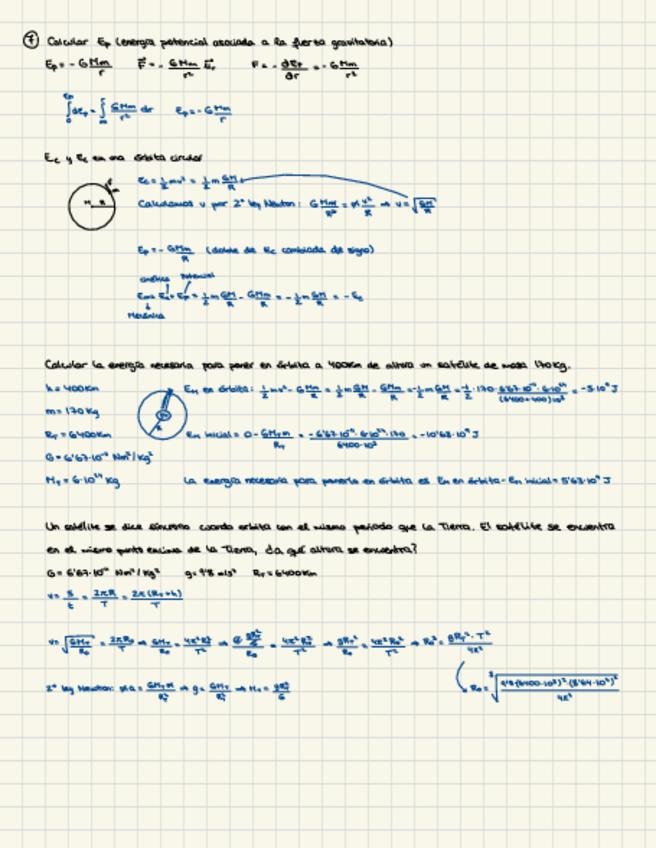 ⑦ Calcular Ep (energía potencial asociada a la fuerza gravitatoria)
Ep = - G Mm/r   F⃗ = - G Mm/r² u⃗r   F = - dEp/dr = - G Mm/r²
∫₀^Ep dEp = ∫∞^r GMm/r² dr   Ep = - G Mm/r
Ec y Ep en una órbita circular
Ec = 1/2 mv² = 1/2 m GM/R
M R m
Calculamos v por 2ª ley Newton: G Mm/R² = m v²/R → v = √(GM/R)
Ep = - G Mm/R (doble de Ec cambiada de signo)
cinética Potencial
Em = Ec + Ep = 1/2 m GM/R - GMm/R = - 1/2 m GM/R = - Ec
Mecánica
Calcular la energía necesaria para poner en órbita a 400Km de altura un satélite de masa 170Kg.
h = 400Km
Em en órbita: 1/2 mv² - G Mm/R = 1/2 m GM/R - GMm/R = - 1/2 m GM/R = - 1/2 · 170 · 6'67·10⁻¹¹ · 6·10²⁴/(6400+400)10³ = -5·10⁹ J
m = 170 Kg
RT = 6400Km
Em inicial = 0 - G MT m/RT = -6'67·10⁻¹¹·6·10²⁴·170/6400·10³ = -10'63·10⁹ J
G = 6'67·10⁻¹¹ Nm²/Kg²
MT = 6·10²⁴ Kg
La energía necesaria para ponerlo en órbita es Em en órbita - Em inicial = 5'63·10⁹ J
Un satélite se dice síncrono cuando orbita con el mismo periodo que la Tierra. El satélite se encuentra
en el mismo punto encima de la Tierra, ¿a qué altura se encuentra?
G = 6'67·10⁻¹¹ Nm²/Kg²   g = 9'8 m/s²   RT = 6400Km
v = s/t = 2πR/T = 2π(RT+h)/T
v = √(GMT/R0) = 2πR0/T → GMT/R0 = 4π²R0²/T² → G gRT²/G/R0 = 4π²R0²/T² → gRT²/R0 = 4π²R0²/T² → R0³ = gRT²·T²/4π²
2ª ley Newton: m a = GMT m/RT² → g = GMT/RT² → MT = gRT²/G
R0 = ³√(9'8(6400·10³)²·(8'64·10⁴)²/4π²)